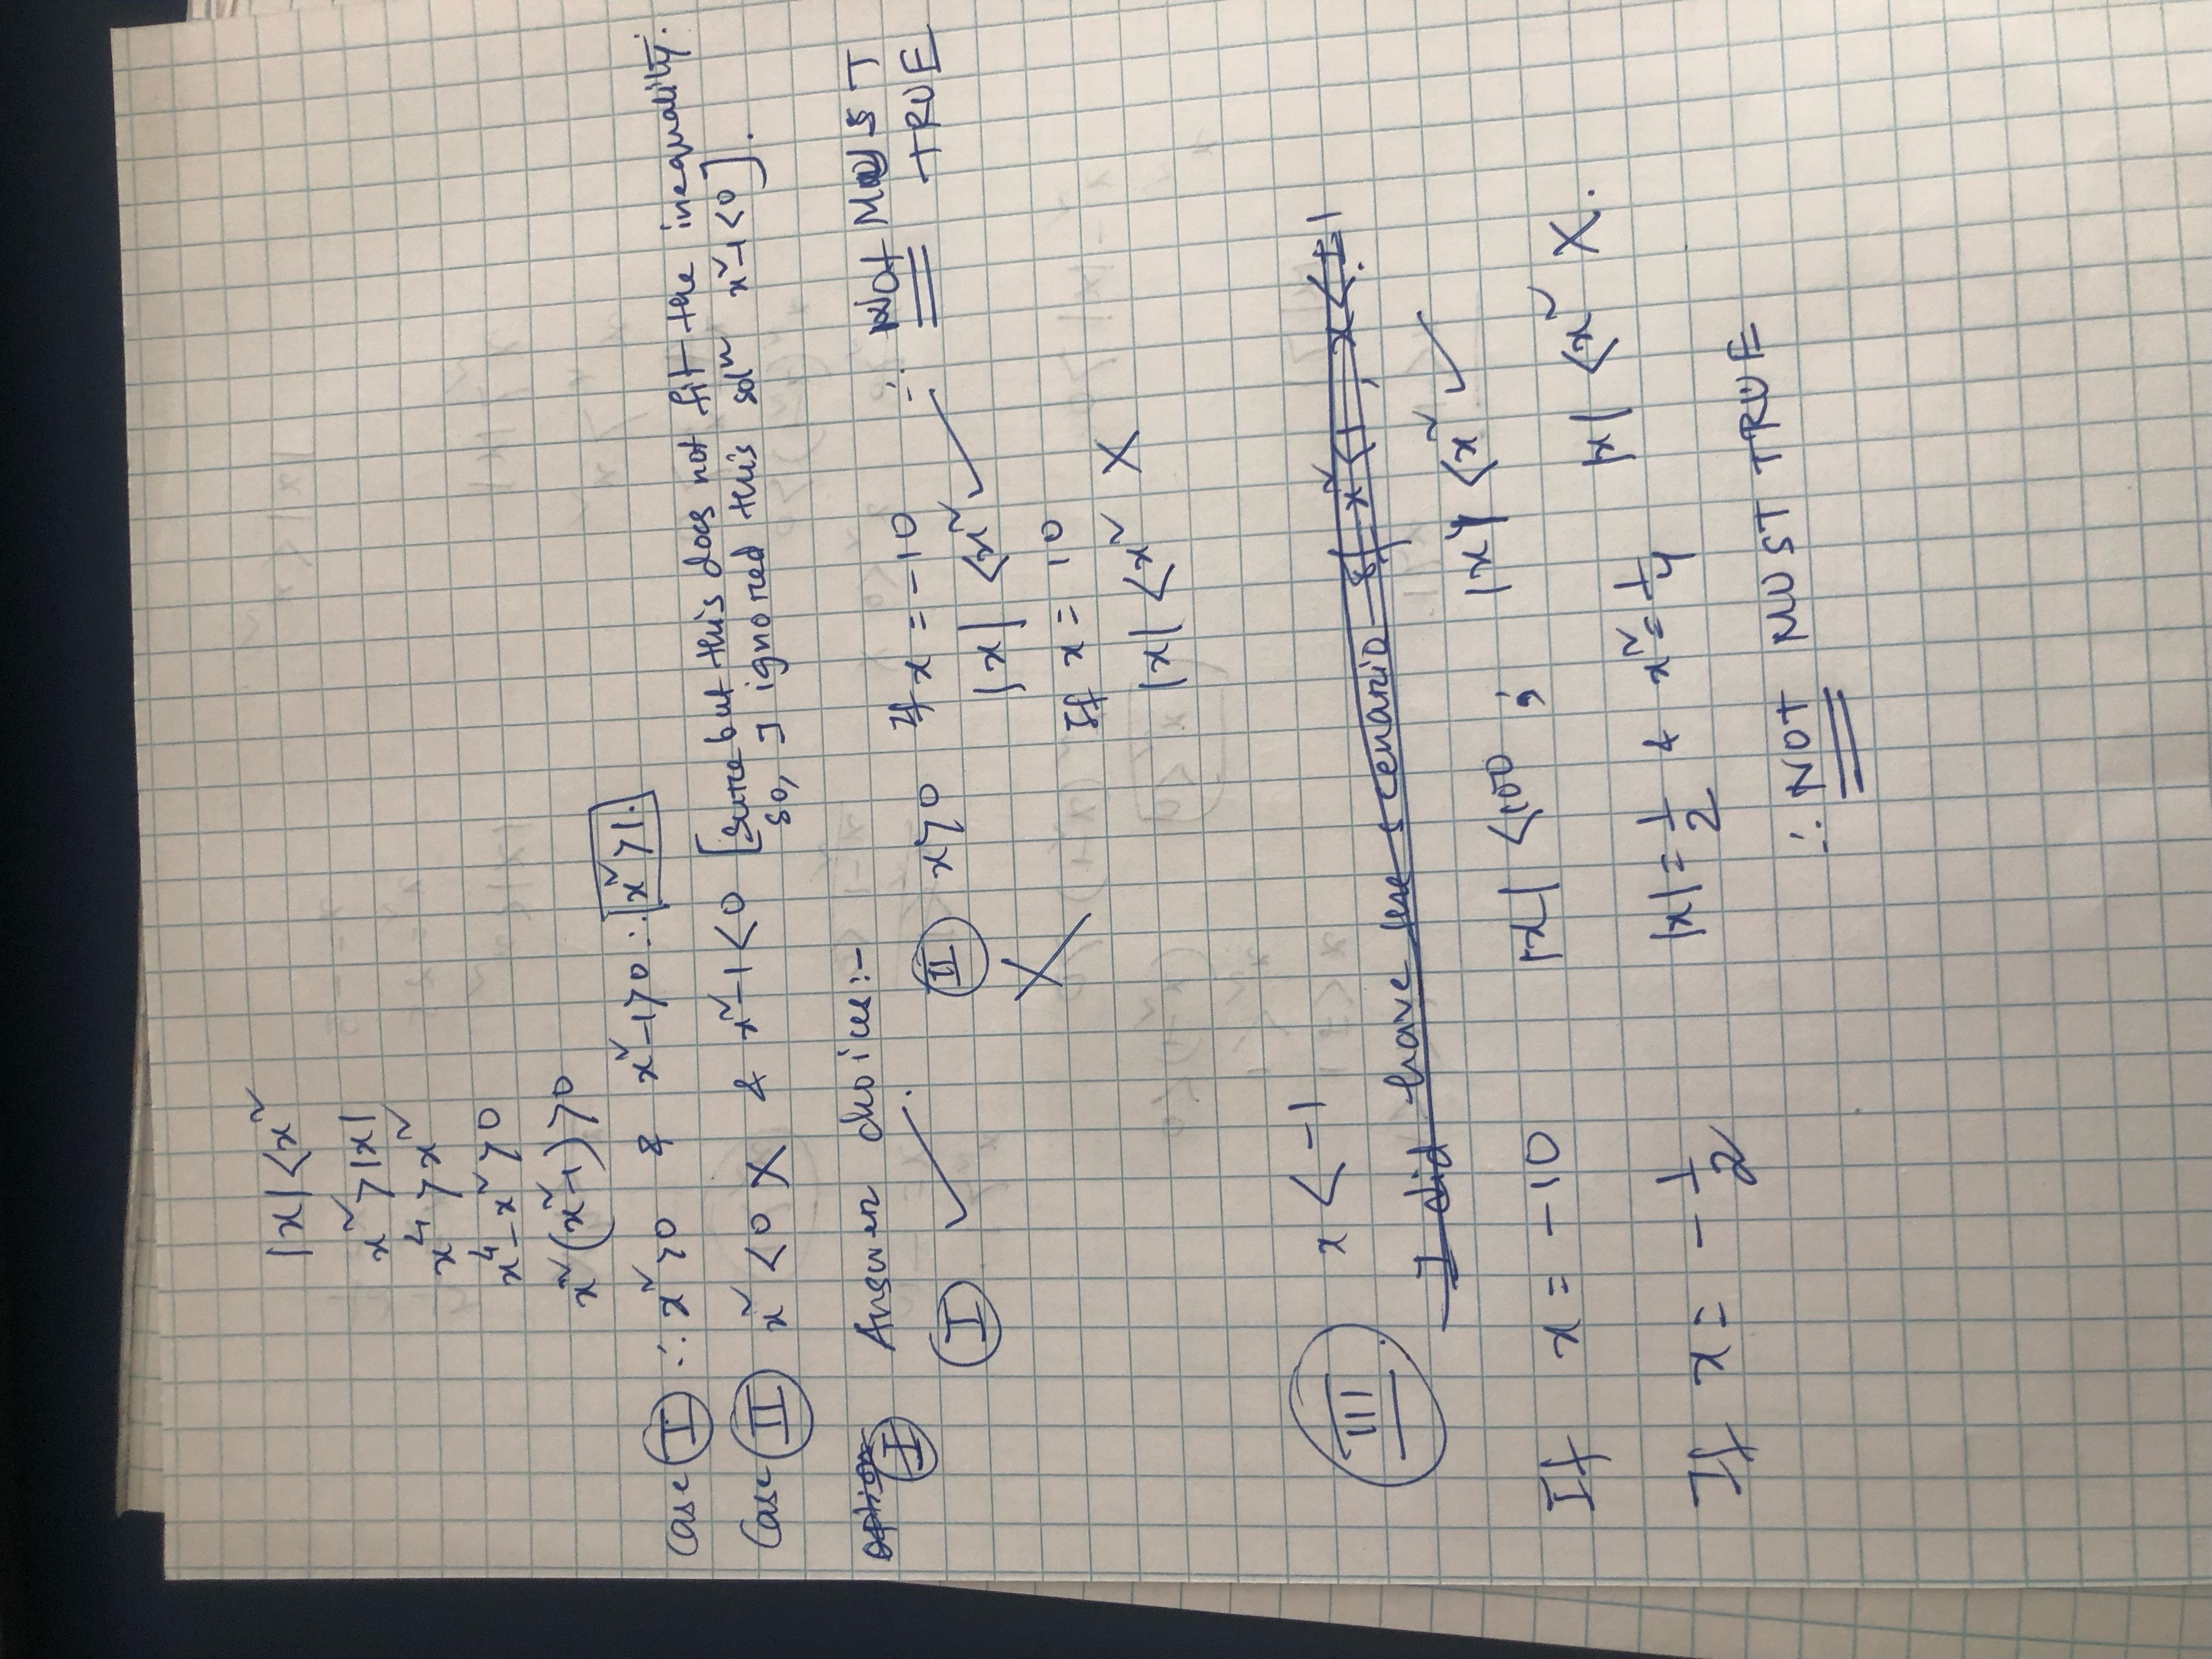 |x| < x²
x² > |x|
x⁴ > x²
x⁴ - x² > 0
x² (x² - 1) > 0
Case I ∴ x² > 0 & x² - 1 > 0 ∴ x² > 1.
Case II x² < 0 X & x² - 1 < 0 [Sure but this does not fit the inequality.
so, I ignored this solⁿ x² - 1 < 0].
I Answer choices:-
I ✓. II x > 0 If x = -10 ∴ NOt MUST
X |x| < x² ✓ TRUE
If x = 10
|x| < x² X
III x < -1
If x = -10 |x| < 100 ; |x| < x² ✓
If x = -1/2 |x| = 1/2 & x² = 1/4 |x| < x² X.
∴ NOt MUST TRUE